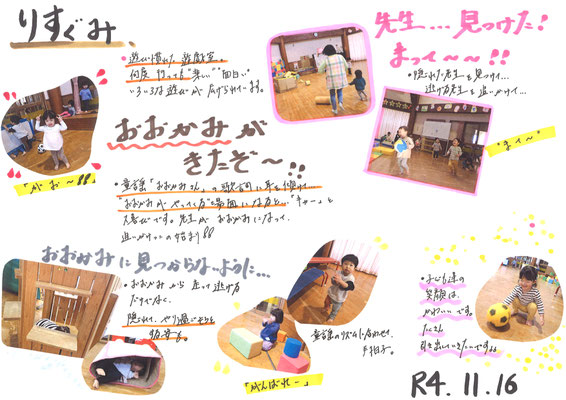 りすぐみ、
・遊び慣れた遊戯室。
何度行っても"楽しい""面白い"
いろいろな遊びが広げられています。
「がお〜!!」
先生…見つけた!
まって〜〜!!
・隠れた先生を見つけて…
逃げる先生を追いかけて…
"まて〜"
おおかみが
きたぞ〜!!
・童謡「おおかみさん」の歌詞に耳を傾けて…
"おおかみがやってくる"場面になると…"キャー"と
大喜びです。先生がおおかみになって、
追いかけっこの始まり!!
おおかみに見つからないように…
・おおかみから走って逃げる
だけでなく、
隠れて、やり過ごそうとする
姿も。
童謡のリズムに合わせて、
手拍子。
「がんばれー」
・子ども達の
笑顔は、
かわいいです。
たくさん
引き出していきたいですね
R4.11.16